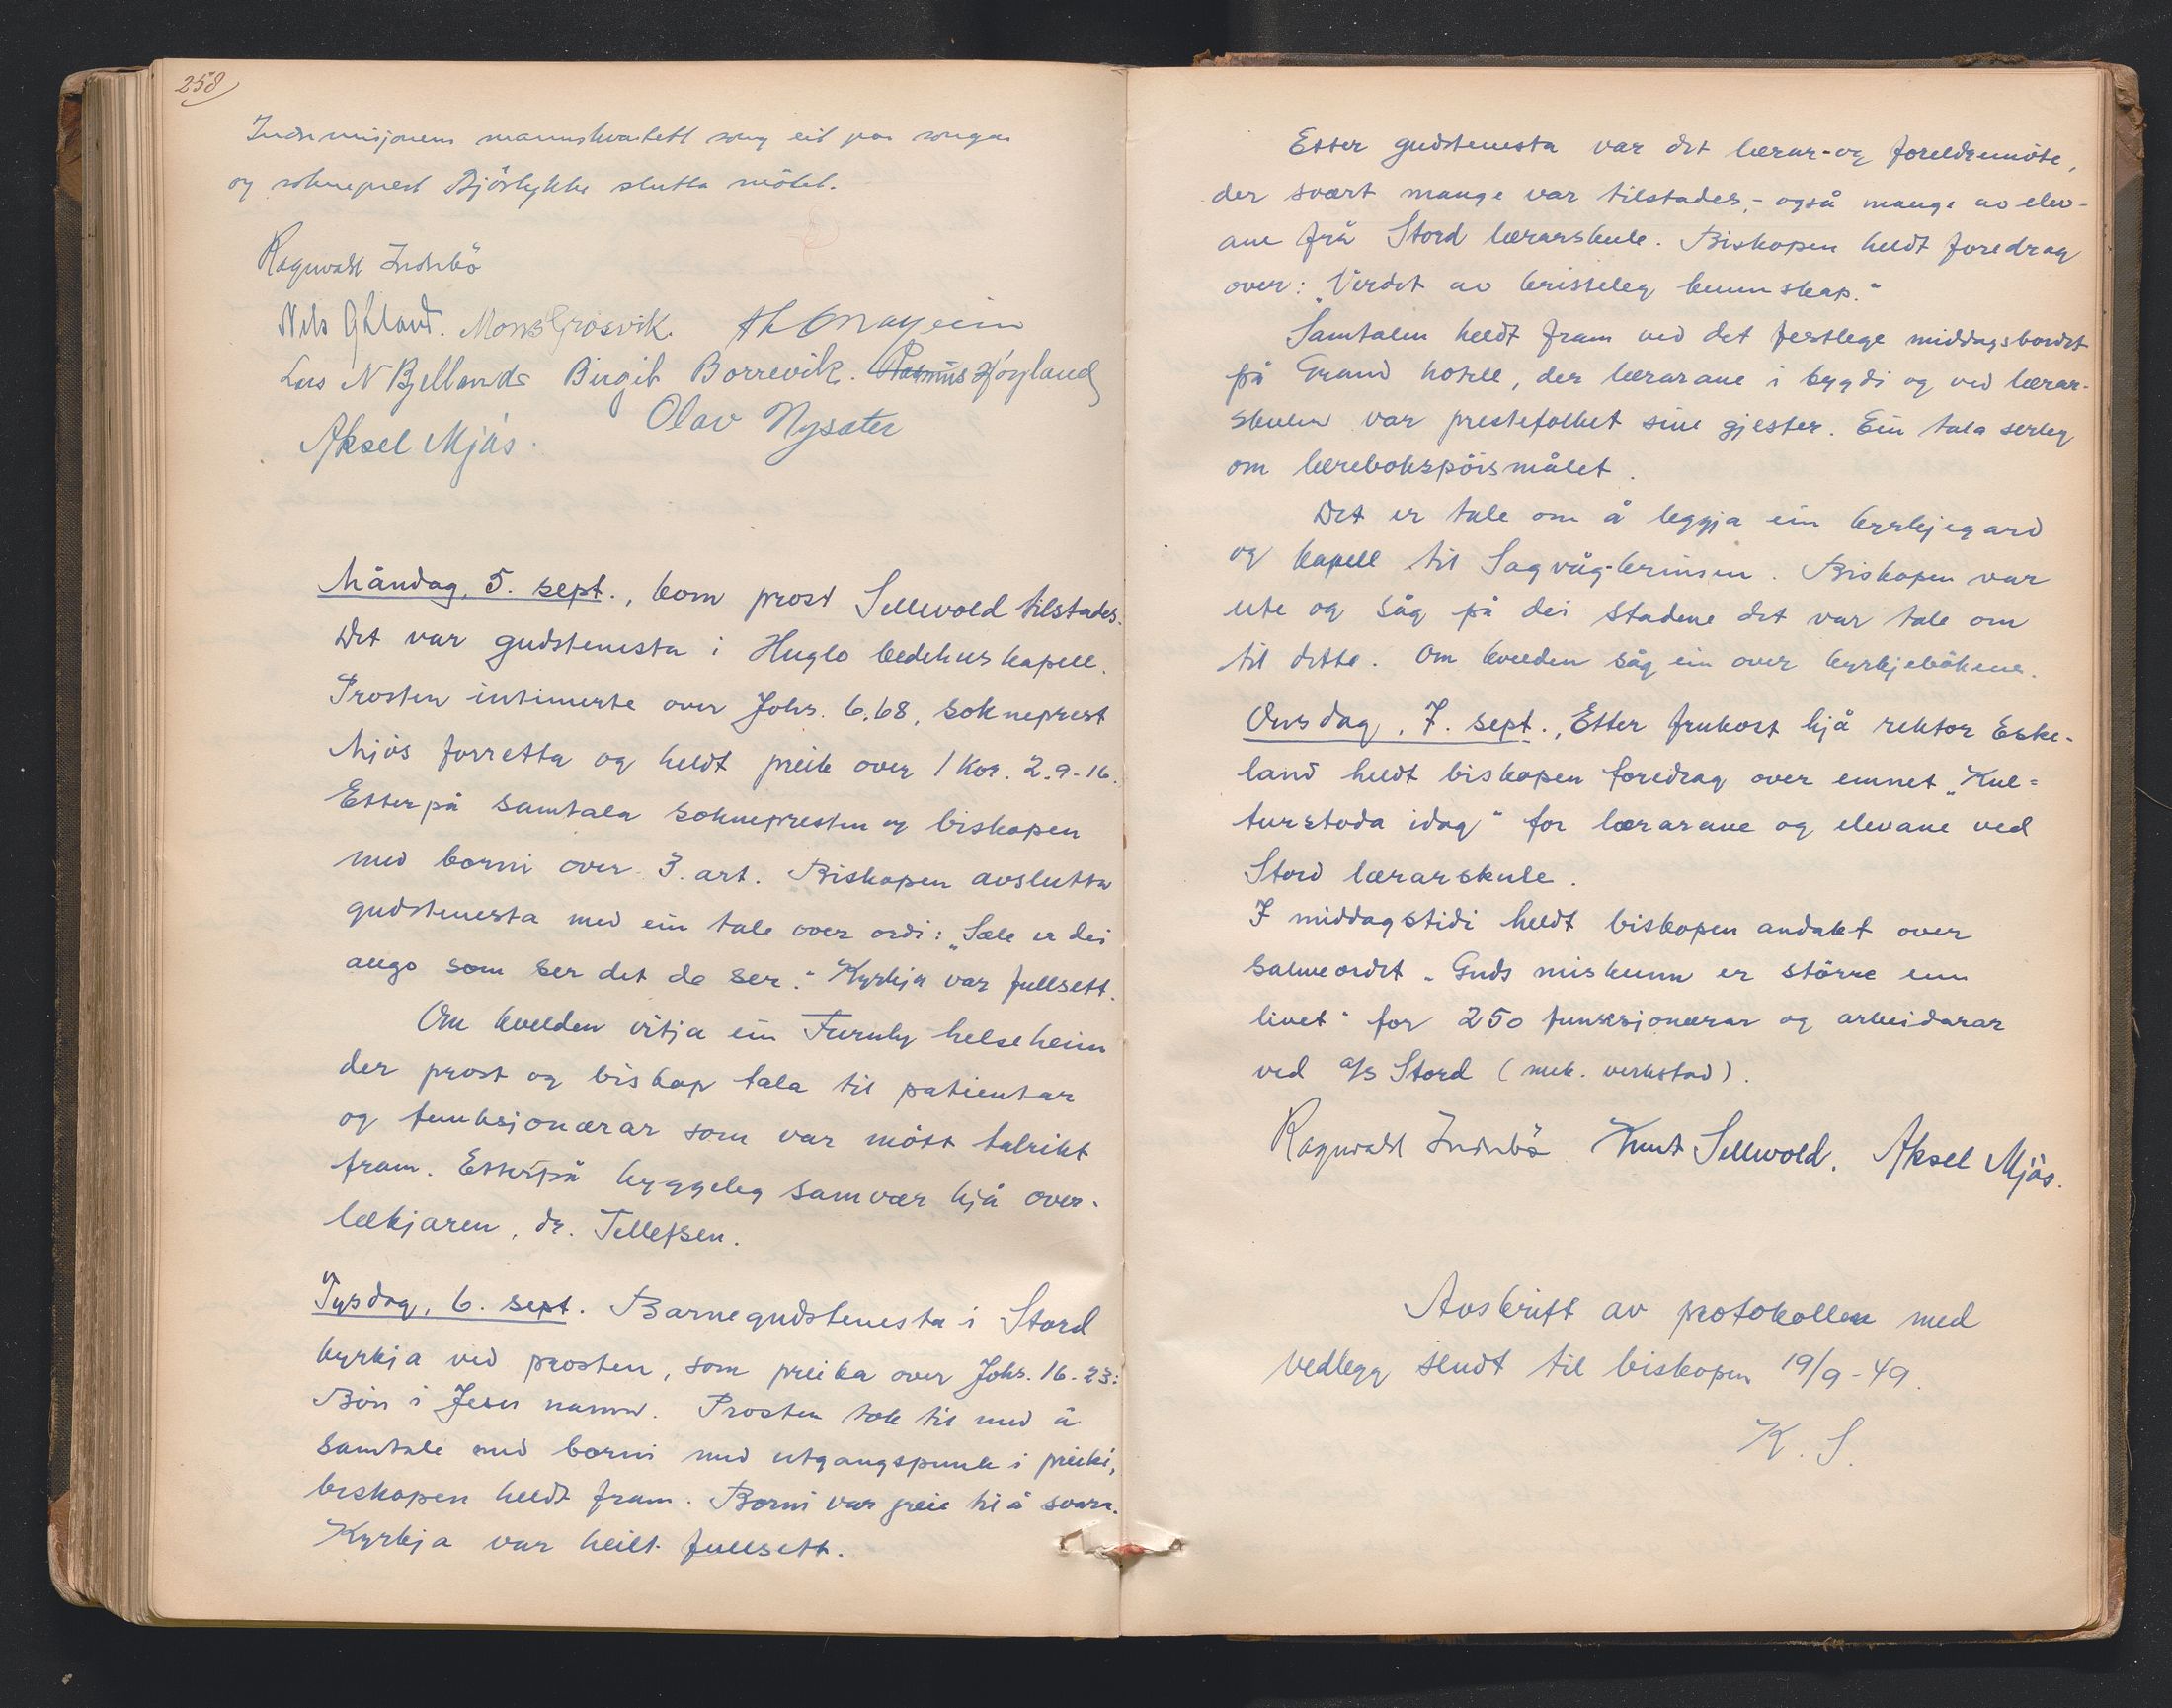 258
Indremisjonens mannskvartett song eit par songar
og sokneprest Bjørlykke slutta møtet.
Ragnvald Indrebö
Nils Økland. Mons Grosvik.
Lars N Bjelland Birgit Borrevik. Rasmus Höyland
Olav Nysæter
Aksel Mjös.
Måndag, 5. sept., kom prost Sellevold tilstades.
Det var gudstenesta i Huglo bedehuskapell.
Prosten intimerte over Johs. 6,68, sokneprest
Mjös forretta og heldt preik over 1 Kor. 2.9-16.
Etterpå samtala soknepresten og biskopen
med borni over 3. art. Biskopen avslutta
gudstenesta med ein tale over ordi: „Sæle er dei
augo som ser det de ser." Kyrkja var fullsett.
Om kvelden vitja ein Furuly helseheim
der prost og biskop tala til patientar
og funksjonærar som var mött talrikt
fram. Etterpå hyggeleg samvær hjå over-
lækjaren, dr. Tellefsen.
Tysdag, 6. sept. Barnegudstenesta i Stord
kyrkja ved prosten, som preika over Johs. 16.23:
Bön i Jesu namn. Prosten tok til med å
samtale med borni med utgangspunk i preiki,
biskopen heldt fram. Borni var greie til å svara.
Kyrkja var heilt fullsett.
Etter gudstenesta var det lærar-og foreldremöte,
der svært mange var tilstades,- også mange av elev-
ane frå Stord lærarskule. Biskopen heldt foredrag
over: „Verdet av kristeleg kunnskap."
Samtalen heldt fram ved det festlege middagsbordet
på Grand hotell, der lærarane i bygdi og ved lærar-
skulen var prestefolket sine gjester. Ein tala serleg
om lærebokspörsmålet.
Det er tale om å leggja ein kyrkjegard
og kapell til Sagvåg-krinsen. Biskopen var
ute og såg på dei stadene det var tale om
til dette. Om kvelden såg ein over kyrkjebökene.
Onsdag, 7. sept., Etter frukost hjå rektor Eske-
land heldt biskopen foredrag over emnet „Kul=
turstoda idag" for lærarane og elevane ved
Stord lærarskule.
I middagstidi heldt biskopen andakt over
salmeordet „Guds miskunn er större enn
livet" for 250 funksjonærar og arbeidarar
ved a/s Stord (mek. verkstad).
Ragnvald Indrebö Knut Sellevold. Aksel Mjös.
Avskrift av protokollen med
vedlegg sendt til biskopen 19/9-49.
K. S.